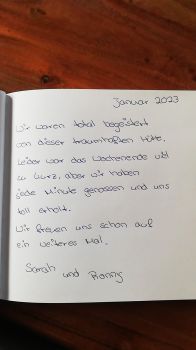 Januar 2023
Wir waren total begeistert
von dieser traumhaften Hütte.
Leider war das Wochenende viel
zu kurz, aber wir haben
jede Minute genossen und uns
toll erholt.
Wir freuen uns schon auf
ein weiteres Mal.
Sarah und Ronny